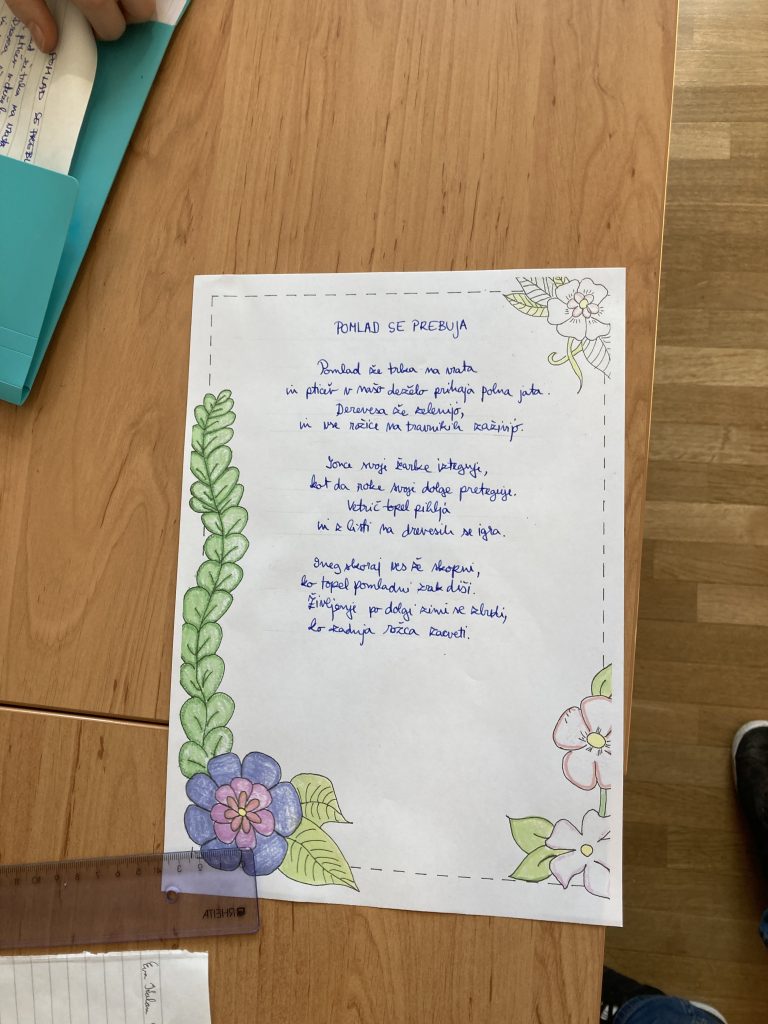 POMLAD SE PREBUJA
Pomlad že trka na vrata
in ptičev v našo deželo prihaja polna jata.
Derevesa že zelenijo,
in vse rožice na travnikih zaživijo.
Sonce svoje žarke izteguje,
kot da roke svoje dolge preteguje.
Vetrič topel pihlja
in z listi na drevesih se igra.
Sneg skoraj ves že skopni,
ko topel pomladni zrak diši.
Življenje po dolgi zimi se zbudi,
ko zadnja rožca zacveti.
POMLAD SE
že trka na vrata
RHEITA
0 1 2 3 4 5 6 7 8 9 10 11